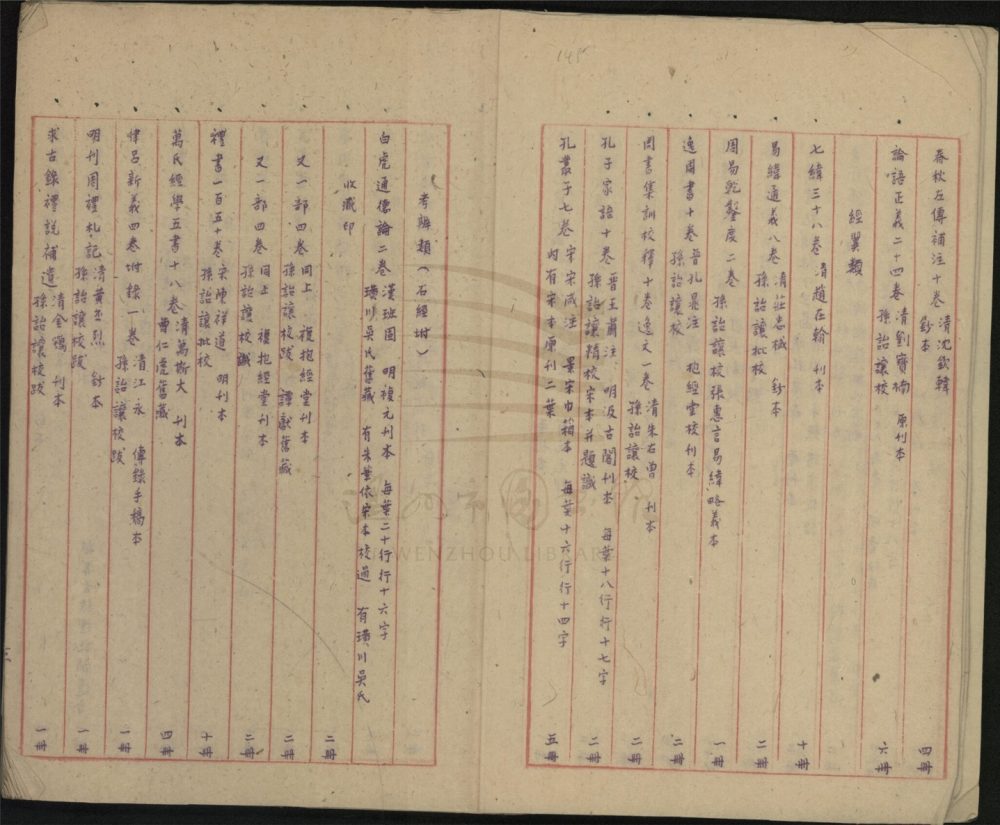 145
春秋左傳補注十卷 清沈欽韓
鈔本 四冊
論語正義二十四卷 清劉寶楠 原刊本
孫詒讓校 六冊
經翼類
七緯三十八卷 清趙在翰 刊本 十冊
易緯通義八卷 清莊忠棫 鈔本
孫詒讓批校 二冊
周易乾鑿度二卷
孫詒讓校張惠言易緯略義本 一冊
逸周書十卷 晉孔晁注 抱經堂校刊本
孫詒讓校 二冊
周書集訓校釋十卷逸文一卷 清朱右曾 刊本
孫詒讓校 二冊
孔子家語十卷 晉王肅注 明汲古閣刊本 每葉十八行行十七字
孫詒讓精校宋本并題識 二冊
孔叢子七卷 宋宋咸注 景宋巾箱本 每葉十六行行十四字
內有宋本原刊二葉 五冊
考辨類(石經坿)
白虎通德論二卷 漢班固 明複元刊本 每葉二十行行十六字
璜川吳氏舊藏 有朱筆依宋本校過 有璜川吳氏
收藏印 二冊
又一部四卷 同上 複抱經堂刊本
孫詒讓校跋 譚獻舊藏 二冊
又一部四卷 同上 複抱經堂刊本
孫詒讓校識 二冊
禮書一百五十卷 宋陳祥道 明刊本
孫詒讓批校 十冊
萬氏經學五書十八卷 清萬斯大 刊本
曹仁虎舊藏 四冊
律呂新義四卷坿錄一卷 清江永 傳錄手稿本
孫詒讓校跋 一冊
明刊周禮札記 清黃丕烈 鈔本
孫詒讓校跋 一冊
求古錄禮說補遺 清金鶚 刊本
孫詒讓校跋 一冊
溫州市圖書館
WENZHOU LIBRARY